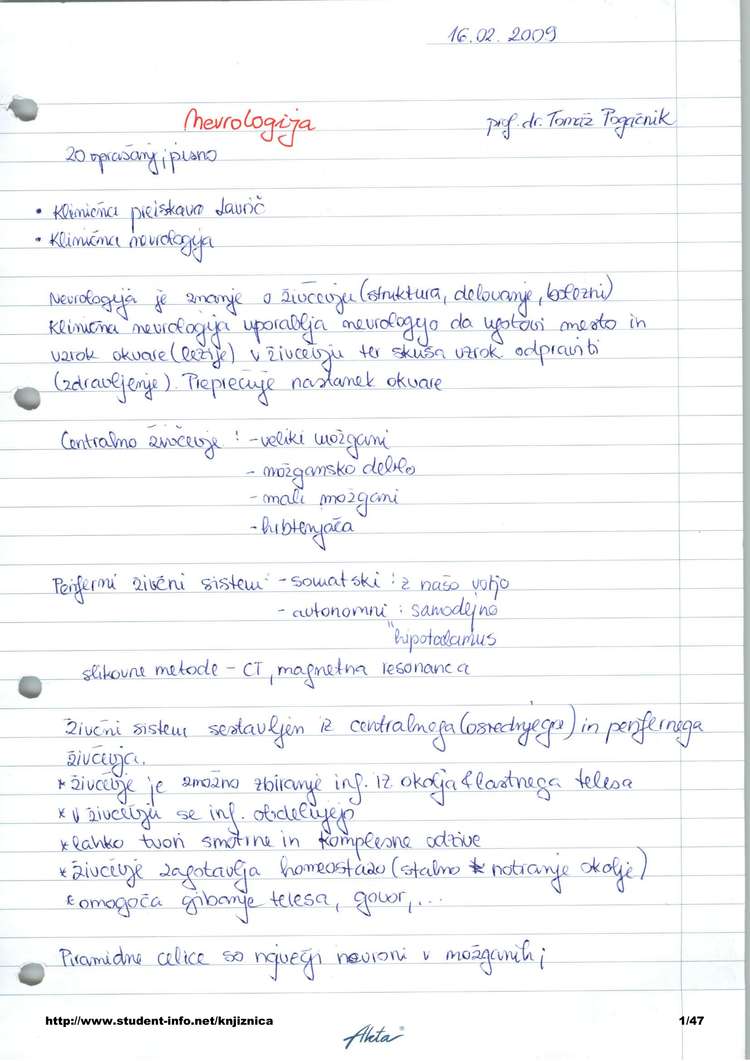 16.02.2009
Nevrologija
prof. dr. Tomaž Pogačnik
20 vprašanj; pisno
• Klinična preiskava Lavrič
• Klinična nevrologija
Nevrologija je znanje o živčevju (struktura, delovanje, bolezni)
Klinična nevrologija uporablja nevrologijo da ugotovi mesto in
vzrok okvare (lezije) v živčevju ter skuša vzrok odpraviti
(zdravljenje). Preprečuje nastanek okvare
Centralno živčevje : - veliki možgani
- možgansko deblo
- mali možgani
- hrbtenjača
Periferni živčni sistem - somatski : z našo voljo
- avtonomni : samodejno
"hipotalamus
slikovne metode - CT, magnetna resonanca
Živčni sistem sestavljen iz centralnega (osrednjega) in perifernega
živčevja.
* živčevje je zmožno zbiranje inf. iz okolja & lastnega telesa
* v živčevju se inf. obdelujejo
* lahko tvori smotrne in kompleksne odzive
* živčevje zagotavlja homeostazo (stalno notranje okolje)
* omogoča gibanje telesa, govor, ...
Piramidne celice so največji nevroni v možganih;
http://www.student-info.net/knjiznica
1/47
Akta